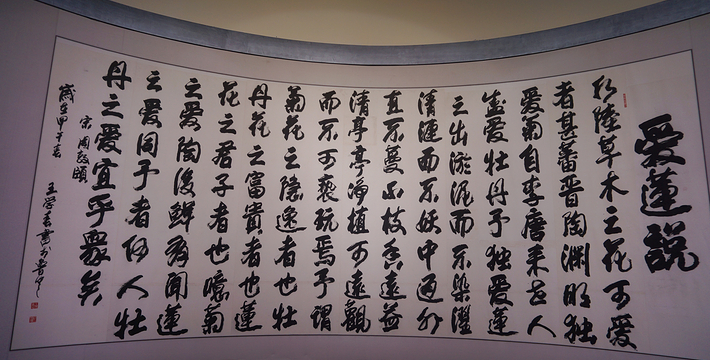 愛蓮説
水陸草木之花可愛
者甚蕃晉陶淵明獨
愛菊自李唐来世人
盛愛牡丹予獨愛蓮
之出淤泥而不染濯
清漣而不妖中通外
直不蔓不枝香遠益
清亭亭淨植可遠觀
而不可褻玩焉予謂
菊花之隱逸者也牡
丹花之富貴者也蓮
花之君子者也噫菊
之愛陶後鮮有聞蓮
之愛同予者何人牡
丹之愛宜乎衆矣
宋周敦頤
歲在甲 春 王 書於